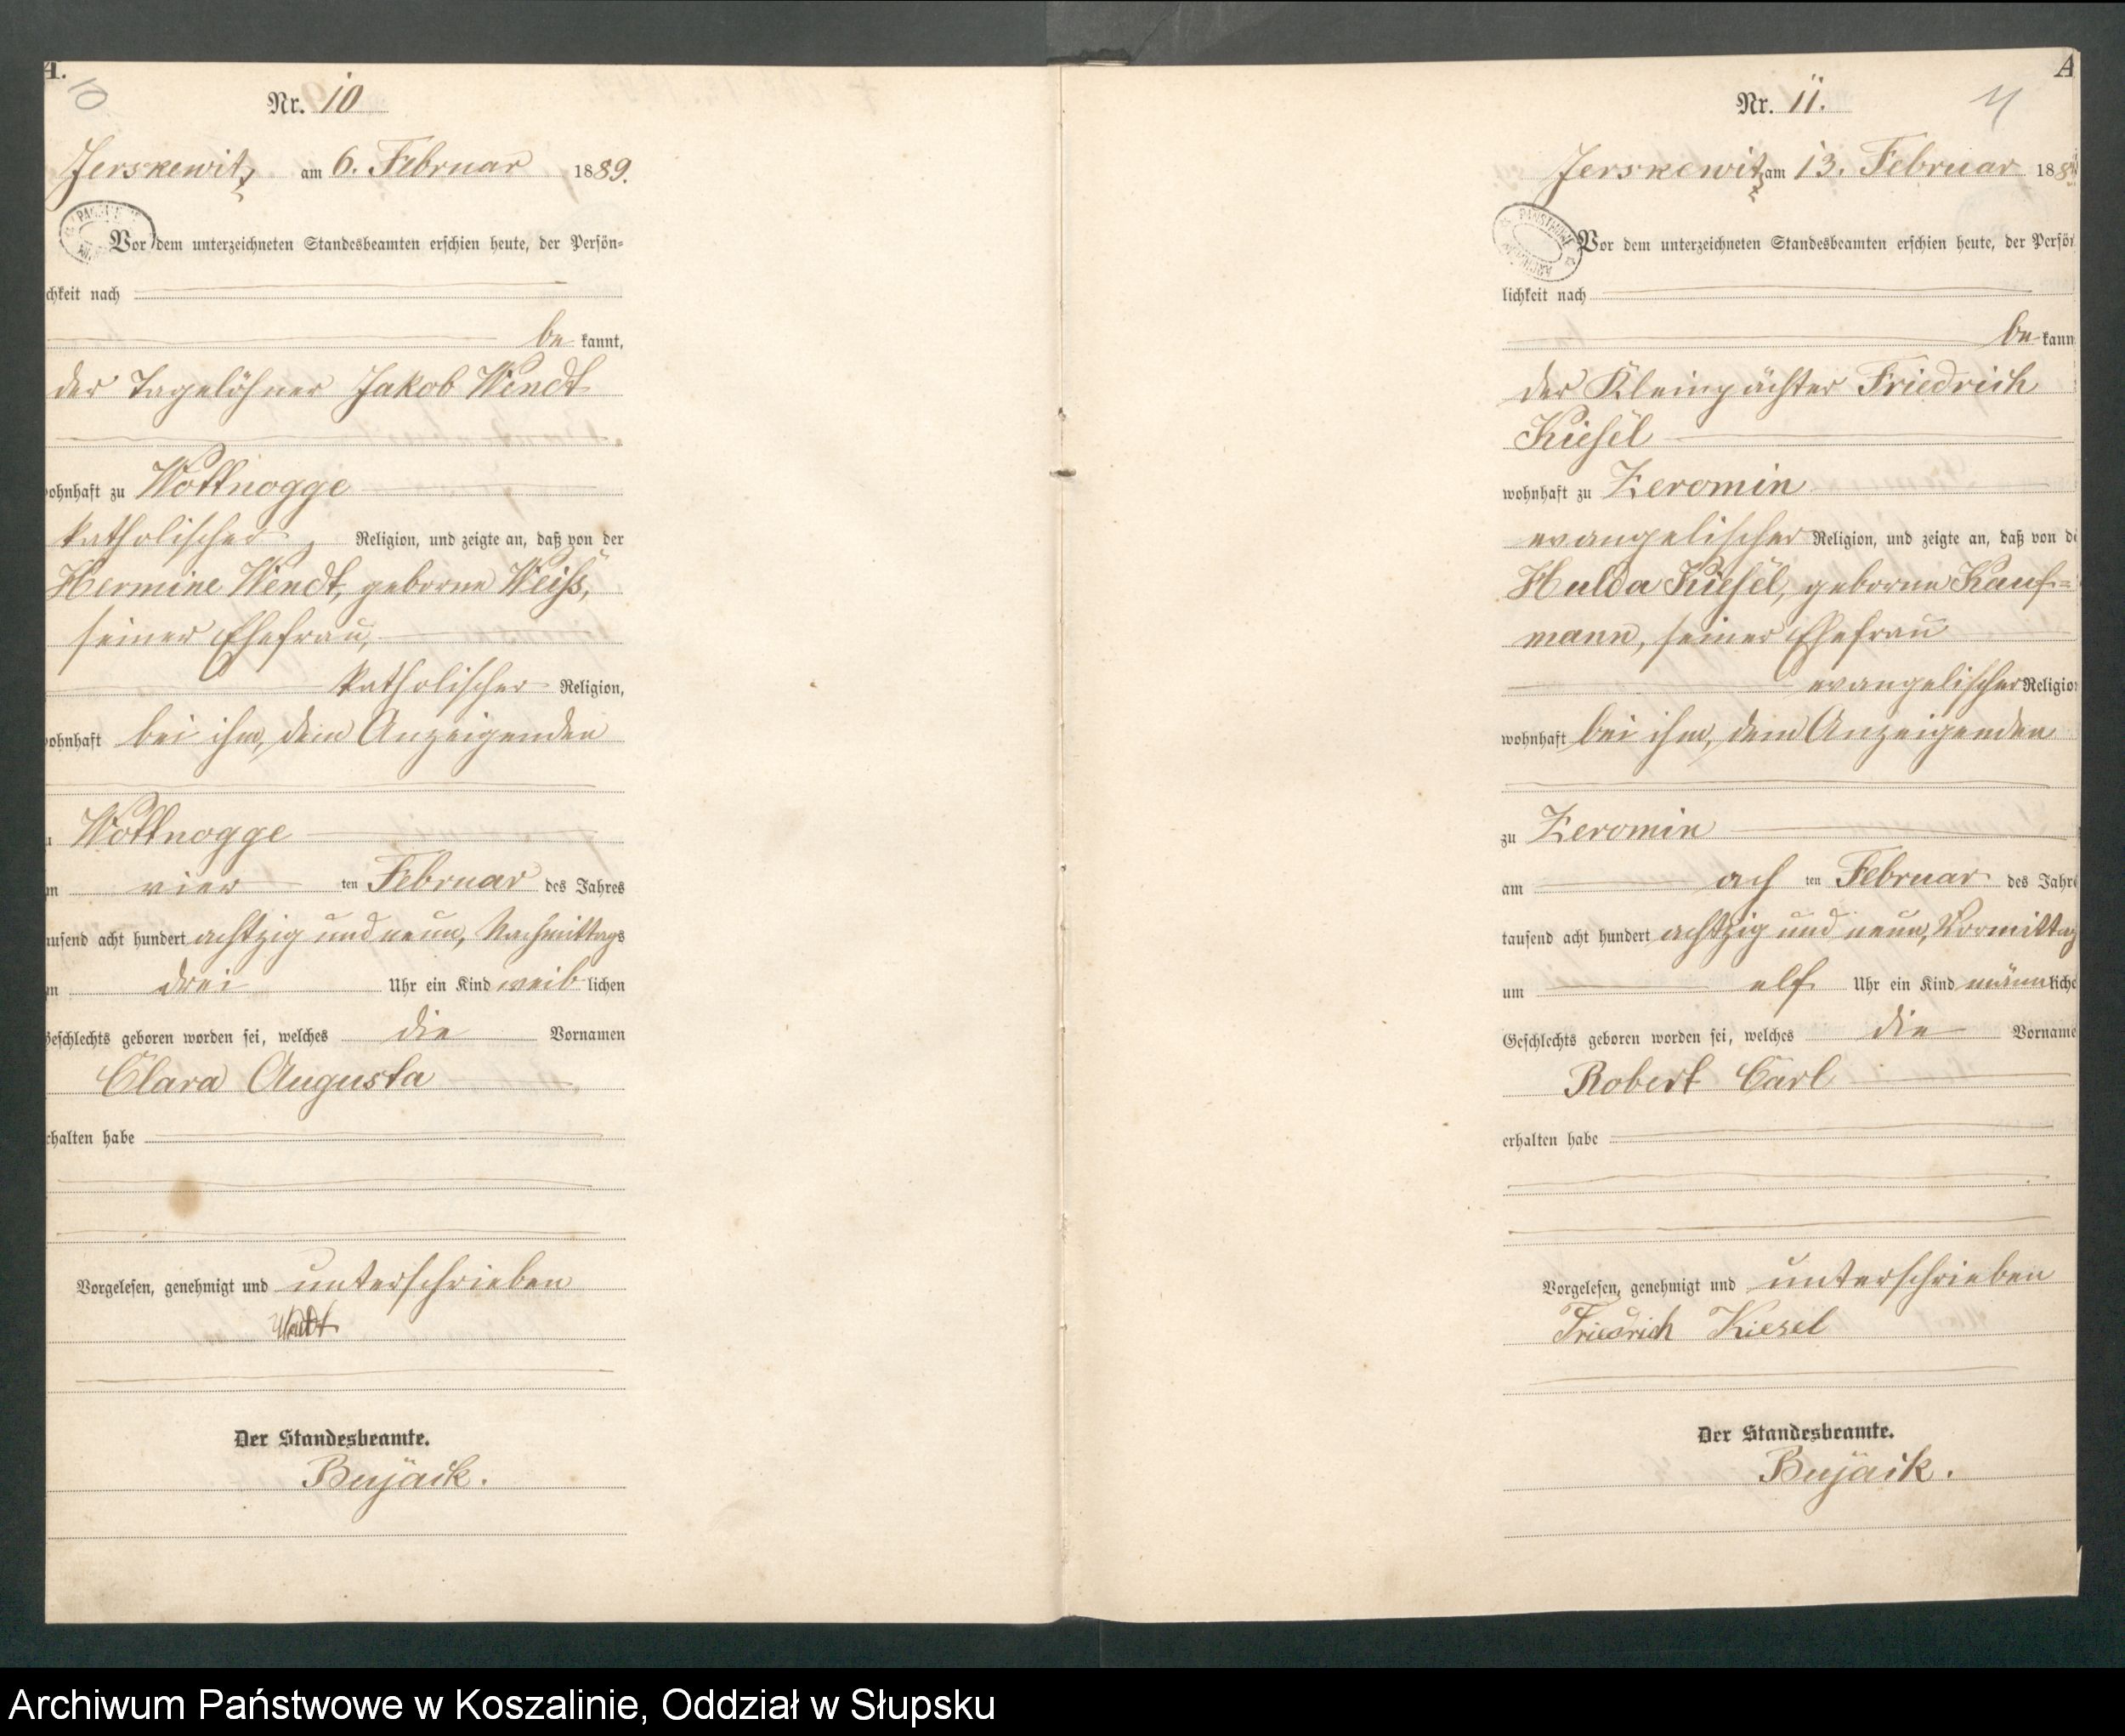 A.
10
Nr. 10
Jerskewitz am 6. Februar 1889.
Vor dem unterzeichneten Standesbeamten erschien heute, der Persön=
chkeit nach
be kannt,
der Tagelöhner Jakob Wendt
ohnhaft zu Wottnogge
katholischer Religion, und zeigte an, daß von der
Hermine Wendt, geborne Weiß,
seiner Ehefrau,
katholischer Religion,
ohnhaft bei ihm, dem Anzeigenden
Wottnogge
vier ten Februar des Jahres
ausend acht hundert achtzig und neun, Nachmittags
drei Uhr ein Kind weib lichen
Geschlechts geboren worden sei, welches die Vornamen
Clara Augusta
rhalten habe
Vorgelesen, genehmigt und unterschrieben
Wendt
Der Standesbeamte.
Bujack.
A
11
Nr. 11.
Jerskewitz am 13. Februar 188
PAŃSTWOWE
Vor dem unterzeichneten Standesbeamten erschien heute, der Persön
lichkeit nach
be kann
der Kleinpächter Friedrich
Kiesel
wohnhaft zu Zeromin
evangelischer Religion, und zeigte an, daß von de
Hulda Kiesel, geborne Kauf=
mann, seiner Ehefrau
evangelischer Religion
wohnhaft bei ihm, dem Anzeigenden
zu Zeromin
am ach ten Februar des Jahre
tausend acht hundert achtzig und neun, Vormittag
um elf Uhr ein Kind männ liche
Geschlechts geboren worden sei, welches die Vorname
Robert Carl
erhalten habe
Vorgelesen, genehmigt und unterschrieben
Friedrich Kiesel
Der Standesbeamte.
Bujack.
Archiwum Państwowe w Koszalinie, Oddział w Słupsku